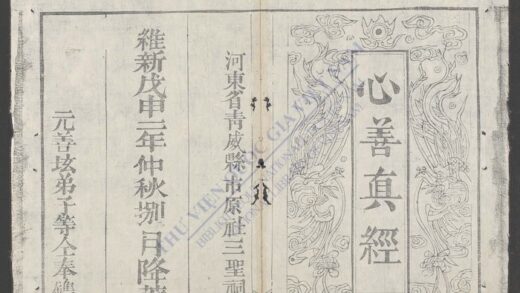 心善真經
河東省青威縣市原社三聖祠
維新戊申二年仲秋捌月降
元善垓弟子等仝奉
THƯ VIỆN QUỐC GIA VIỆT NAM